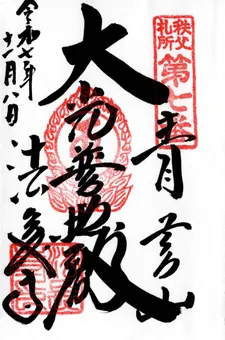 秩父札所
第七番
青苔山
大光普照殿
法長寺
令和七年十一月八日